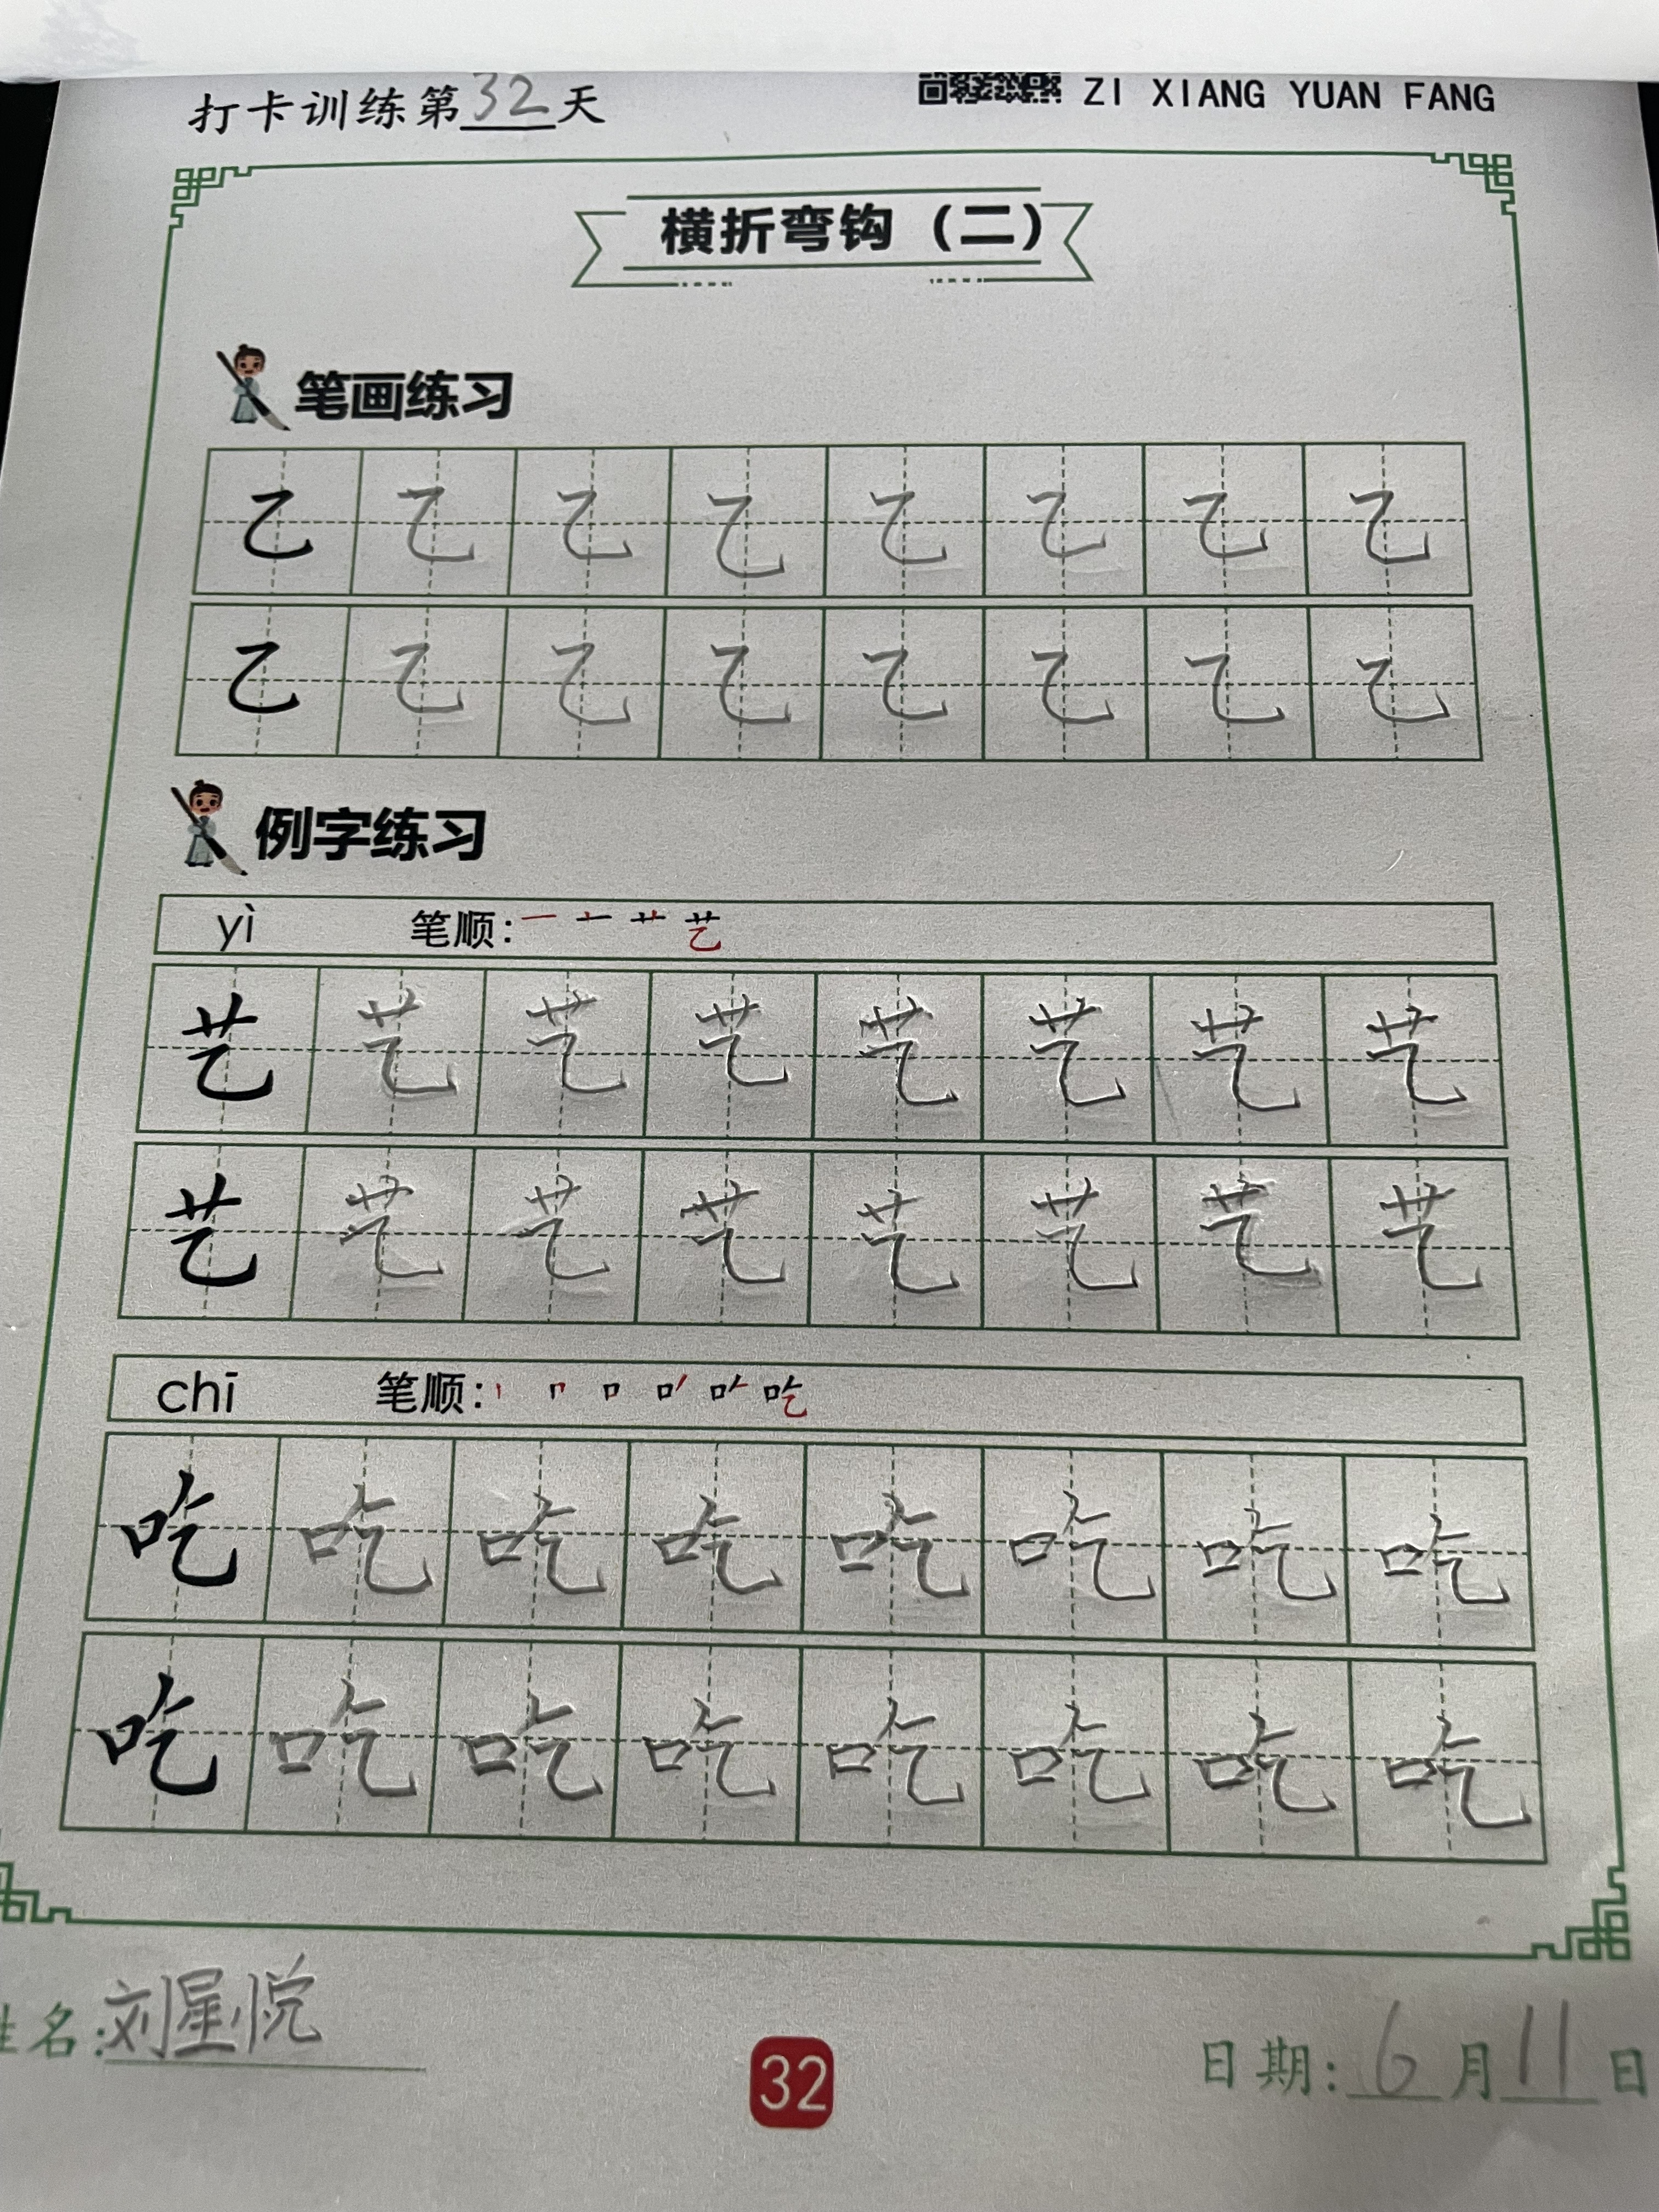 打卡训练第32天
ZI XIANG YUAN FANG
横折弯钩（二）
笔画练习
乙 乙 乙 乙 乙 乙 乙 乙
乙 乙 乙 乙 乙 乙 乙 乙
例字练习
yì 笔顺：一 十 艹 艺
艺 艺 艺 艺 艺 艺 艺 艺
艺 艺 艺 艺 艺 艺 艺 艺
chī 笔顺：丨 冂 口 吃
吃 吃 吃 吃 吃 吃 吃 吃
吃 吃 吃 吃 吃 吃 吃 吃
姓名：刘星悦
32
日期：6月11日